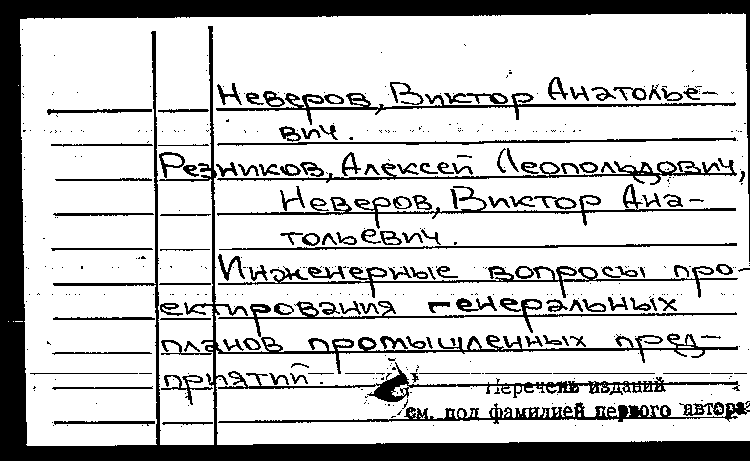 Неверов, Виктор Анатолье-
вич.
Резников, Алексей Леопольдович,
Неверов, Виктор Ана-
тольевич.
Инженерные вопросы про-
ектирования генеральных
планов промышленных пред-
приятий.
Перечень изданий
см. под фамилией первого автора